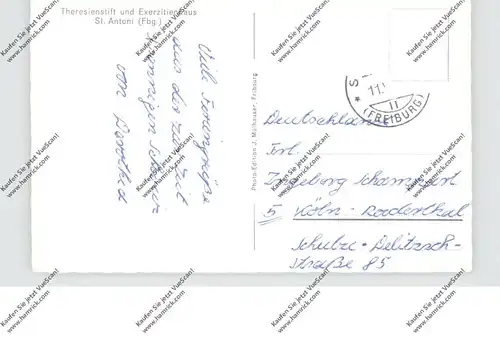 Theresienstift und Exerzitienhaus
St. Antoni (Fbg.)
Viele Feriengrüße
aus der zur Zeit
sonnigen Schweiz
von Dorothea
Photo-Edition J. Mülhauser, Fribourg
S
11.
II
(FREIBURG)
Deutschland
Frl.
Ingeborg
5 Köln-Lindenthal
Schulze-Delitzsch-
straße 85
Kaufen Sie jetzt VueScan!
www.hamrick.com